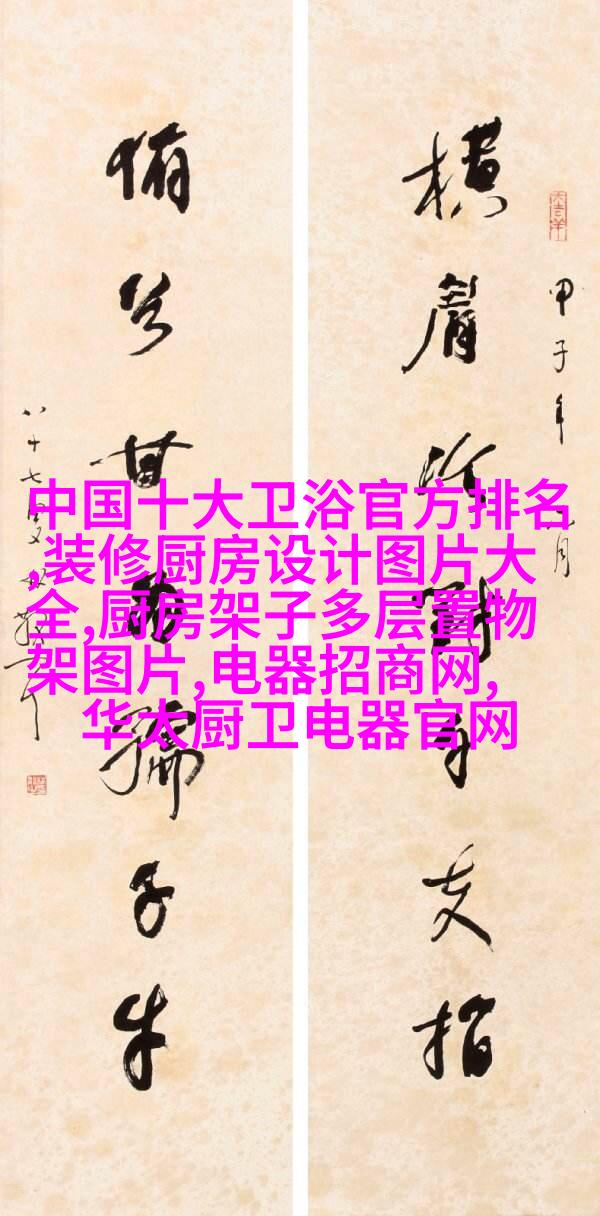 甲子年
橫眉冷對千夫指
俯首甘為孺子牛
八十七叟
中国十大卫浴官方排名
,装修厨房设计图片大
全,厨房架子多层置物
架图片,电器招商网,
华太厨卫电器官网